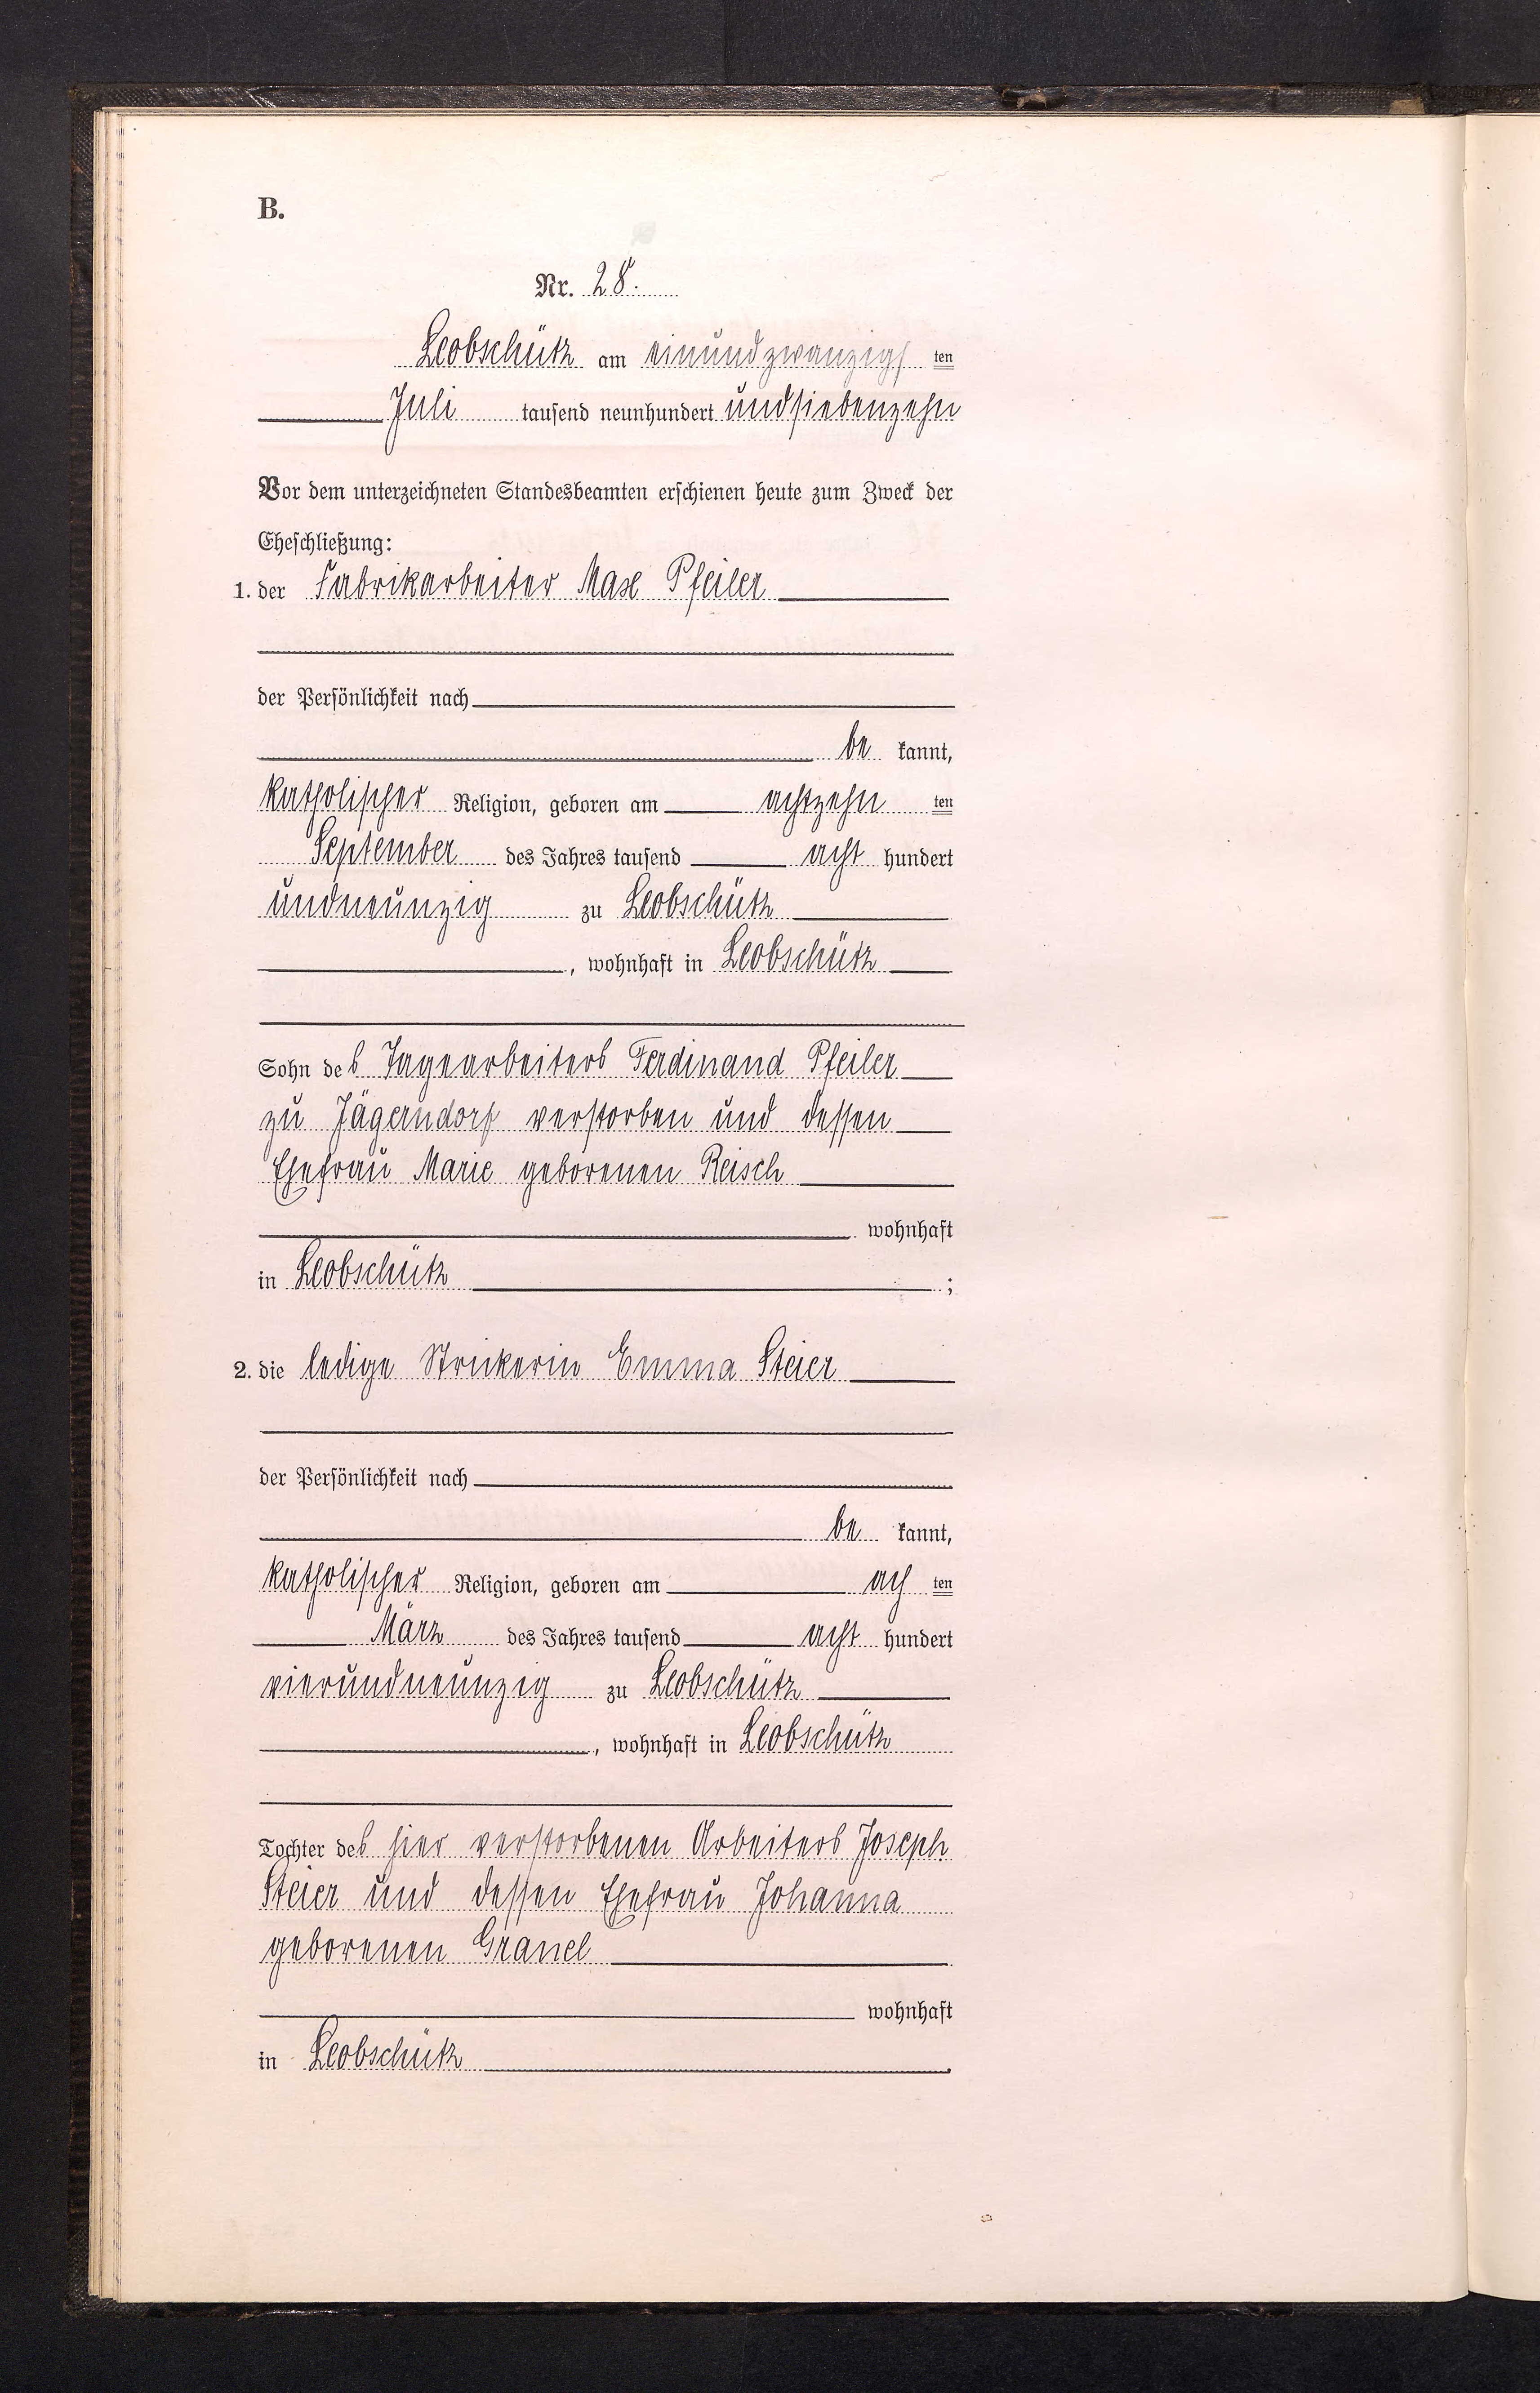 B.
Nr. 28.
Leobschütz am einundzwanzigs ten
Juli tausend neunhundert undsiebenzehn
Vor dem unterzeichneten Standesbeamten erschienen heute zum Zweck der
Eheschließung:
1. der Fabrikarbeiter Max Pfeiler
der Persönlichkeit nach
be kannt,
katholischer Religion, geboren am achtzehn ten
September des Jahres tausend acht hundert
undneunzig zu Leobschütz
, wohnhaft in Leobschütz
Sohn des Tagearbeiters Ferdinand Pfeiler
zu Jägerndorf verstorben und dessen
Ehefrau Marie geborenen Reisch
wohnhaft
in Leobschütz ;
2. die ledige Strickerin Emma Steier
der Persönlichkeit nach
be kannt,
katholischer Religion, geboren am ach ten
März des Jahres tausend acht hundert
vierundneunzig zu Leobschütz
, wohnhaft in Leobschütz
Tochter des hier verstorbenen Arbeiters Joseph
Steier und dessen Ehefrau Johanna
geborenen Granel
wohnhaft
in Leobschütz .